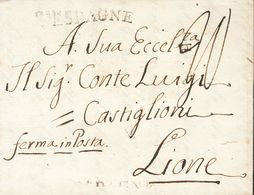 D'ESPAGNE
A. Sua Eccell.za
Il Sig.r Conte Luigi
Castiglioni
ferma in Posta.
Lione